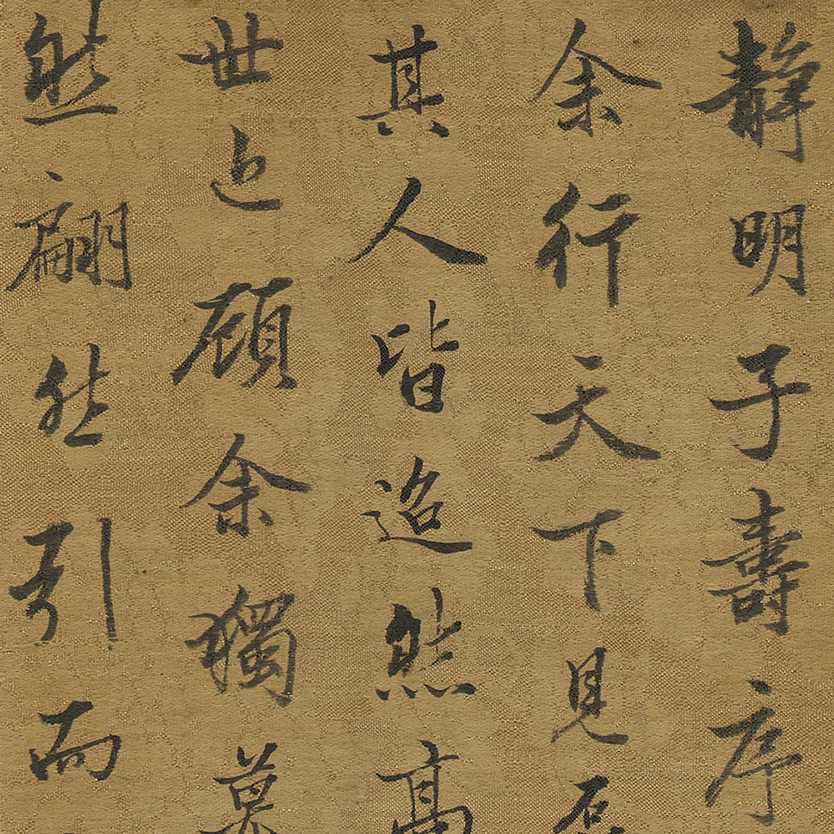 靜明子壽序
余行天下見
其人皆迢然高
世顧余獨慕
然翩然引而